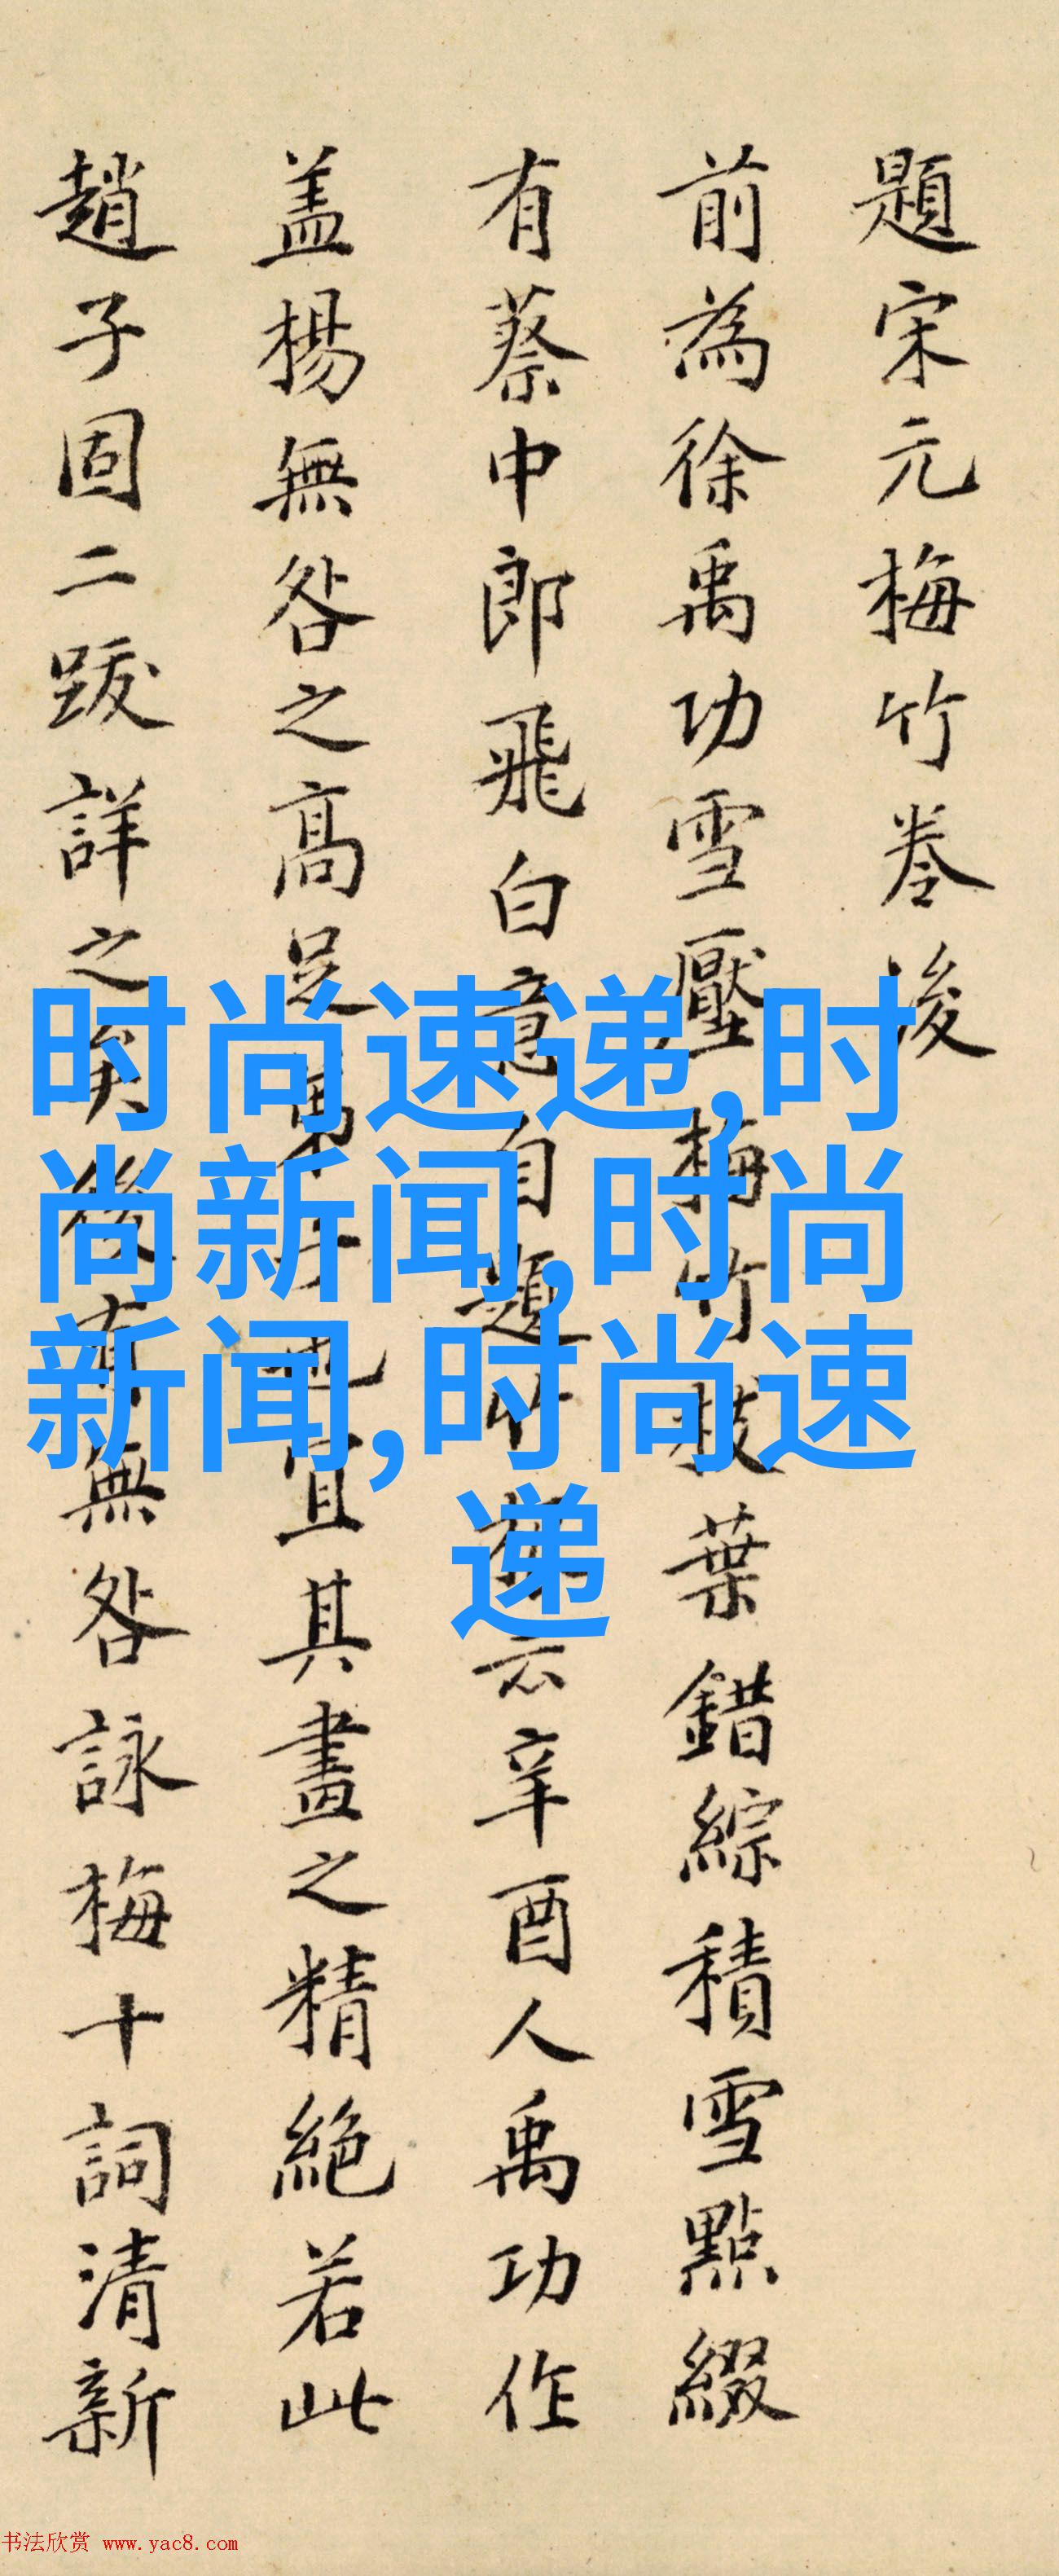 題宋元梅竹卷後
前為徐禹功雪壓梅竹枝葉錯綜積雪點綴
有蔡中郎飛白意自題竹云辛酉人禹功作
盖楊無咎之高足弟子也宜其畫之精絕若此
趙子固二跋詳之矣後有無咎詠梅十詞清新
时尚速递,时
尚新闻,时尚
新闻,时尚速
递
书法欣赏 www.yac8.com